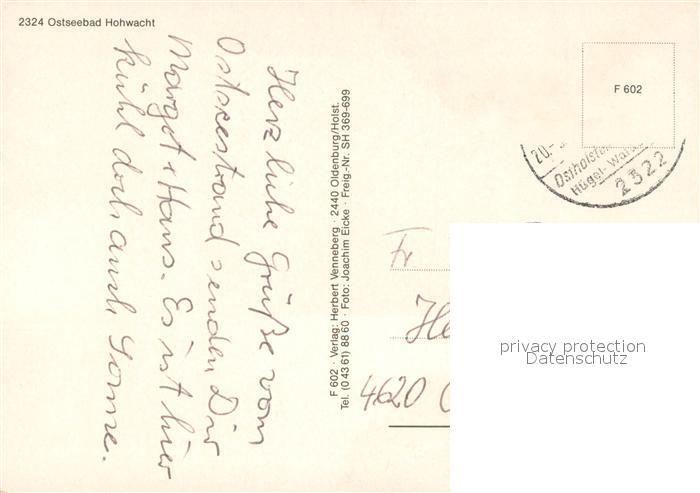 2324 Ostseebad Hohwacht
Herzliche Grüße vom
Ostseestrand senden Dir
Margot + Hans. Es ist hier
kühl doch auch Sonne.
F 602 · Verlag: Herbert Venneberg · 2440 Oldenburg/Holst.
Tel. (0 43 61) 88 60 · Foto: Joachim Eicke · Freig.-Nr. SH 369-699
F 602
20.
2322
Fr
4620
privacy protection
Datenschutz